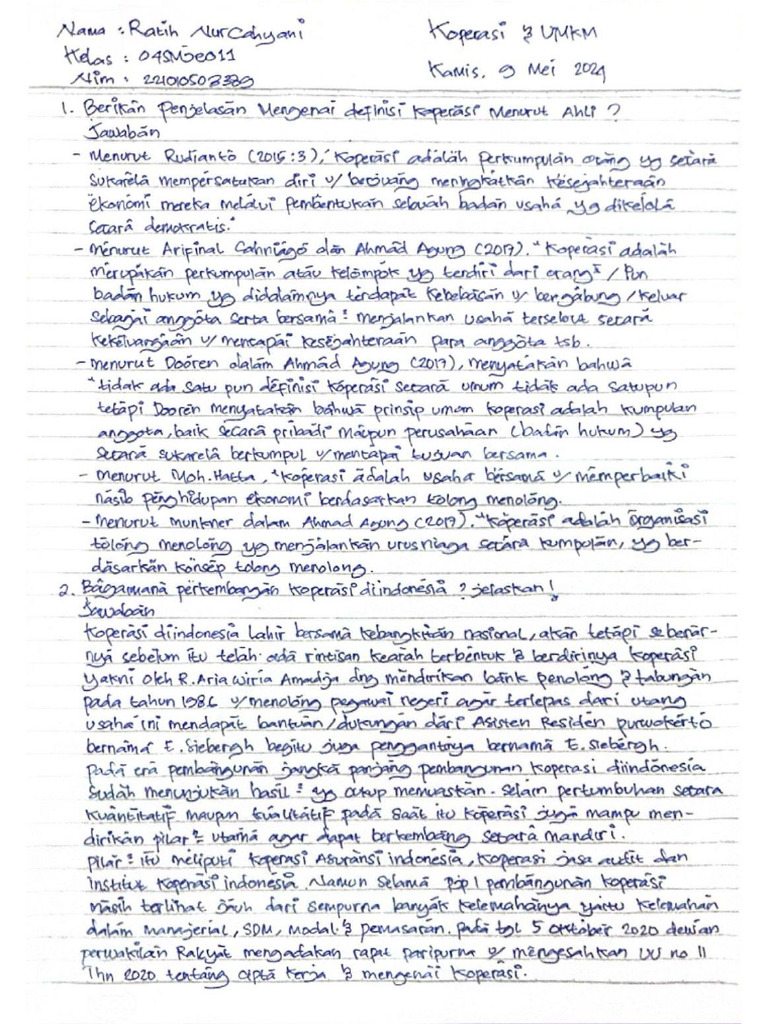 Nama : Ratih Nurcahyani
Koperasi & UMKM
Kelas : 04SMJE011
Kamis, 9 Mei 2024
Nim : 221010503389
1. Berikan Penjelasan Mengenai definisi Koperasi Menurut Ahli ?
Jawaban
- Menurut Rudianto (2015:3), "Koperasi adalah perkumpulan orang yg secara
sukarela mempersatukan diri u/ berjuang meningkatkan Kesejahteraan
Ekonomi mereka melalui pembentukan sebuah badan usaha yg dikelola
secara demokratis."
- menurut Arifinal Cahniago dan Ahmad Agung (2017). "Koperasi adalah
merupakan perkumpulan atau kelompok yg terdiri dari orang² / Pun
badan hukum yg didalamnya terdapat kebebasan u/ bergabung /Keluar
sebagai anggota serta bersama² menjalankan usaha tersebut secara
kekeluargaan u/ mencapai kesejahteraan para anggota tsb.
- menurut Dooren dalam Ahmad Agung (2017), menyatakan bahwa
"tidak ada satu pun definisi koperasi secara umum tidak ada satupun
tetapi Dooren menyatakan bahwa prinsip umum koperasi adalah kumpulan
anggota, baik secara pribadi maupun perusahaan (badan hukum) yg
secara sukarela berkumpul u/ mencapai tujuan bersama.
- menurut Moh. Hatta, "Koperasi adalah usaha bersama u/ memperbaiki
nasib penghidupan ekonomi berdasarkan tolong menolong.
- menurut munkner dalam Ahmad Agung (2017). "Koperasi adalah organisasi
tolong menolong yg menjalankan urusniaga secara kumpulan, yg ber-
dasarkan konsep tolong menolong.
2. Bagaimana perkembangan koperasi diindonesia ? jelaskan !
Jawaban
Koperasi diindonesia lahir bersama kebangkitan nasional, akan tetapi sebenar-
nya sebelum itu telah ada rintisan kearah terbentuk & berdirinya Koperasi
yakni oleh R. Aria Wiria Amadja dng mendirikan bank penolong & tabungan
pada tahun 1986 u/ menolong pegawai negeri agar terlepas dari utang
usaha ini mendapat bantuan/dukungan dari Asisten Residen purwokerto
bernama E. Siebergh begitu juga penggantinya bernama E. Siebergh.
Pada era pembangunan jangka panjang pembangunan koperasi diindonesia
sudah menunjukan hasil² yg cukup memuaskan. Selain pertumbuhan secara
kuantitatif maupun kualitatif pada saat itu koperasi juga mampu men-
dirikan pilar² utama agar dapat berkembang secara mandiri.
pilar² itu meliputi koperasi Asuransi indonesia, koperasi jasa audit dan
institut koperasi indonesia. Namun Selama PJP 1 pembangunan koperasi
masih terlihat jauh dari sempurna banyak kelemahanya yaitu Kelemahan
dalam manajerial, SDM, Modal & pemasaran. pada tgl 5 Oktober 2020 dewan
perwakilan Rakyat mengadakan rapat paripurna u/ mengesahkan UU no 11
Thn 2020 tentang cipta kerja & mengenai koperasi.